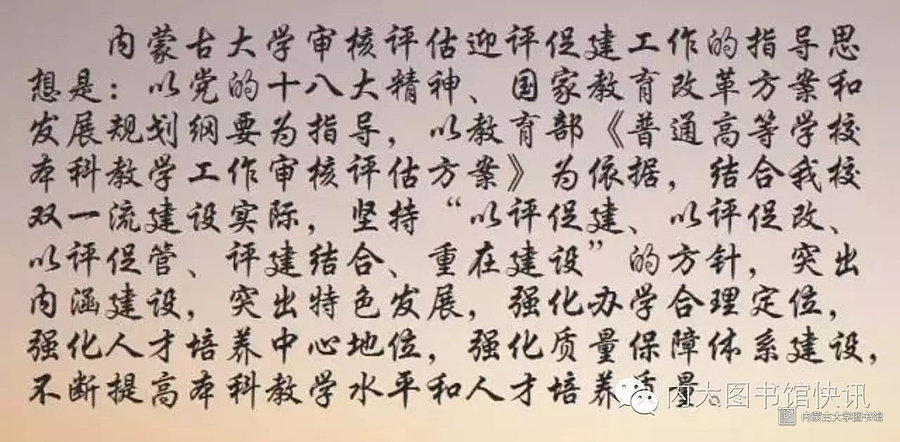 内蒙古大学审核评估迎评促建工作的指导思
想是：以党的十八大精神、国家教育改革方案和
发展规划纲要为指导，以教育部《普通高等学校
本科教学工作审核评估方案》为依据，结合我校
双一流建设实际，坚持“以评促建、以评促改、
以评促管、评建结合、重在建设”的方针，突出
内涵建设，突出特色发展，强化办学合理定位，
强化人才培养中心地位，强化质量保障体系建设，
不断提高本科教学水平和人才培养质量。
内大图书馆快讯
内蒙古大学图书馆